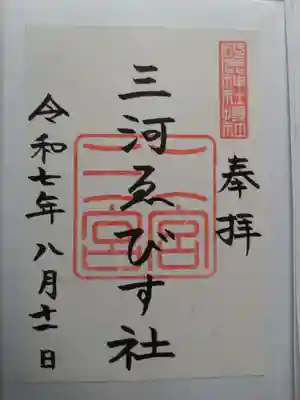 奉拝
三河ゑびす社
二宮
令和七年八月十一日